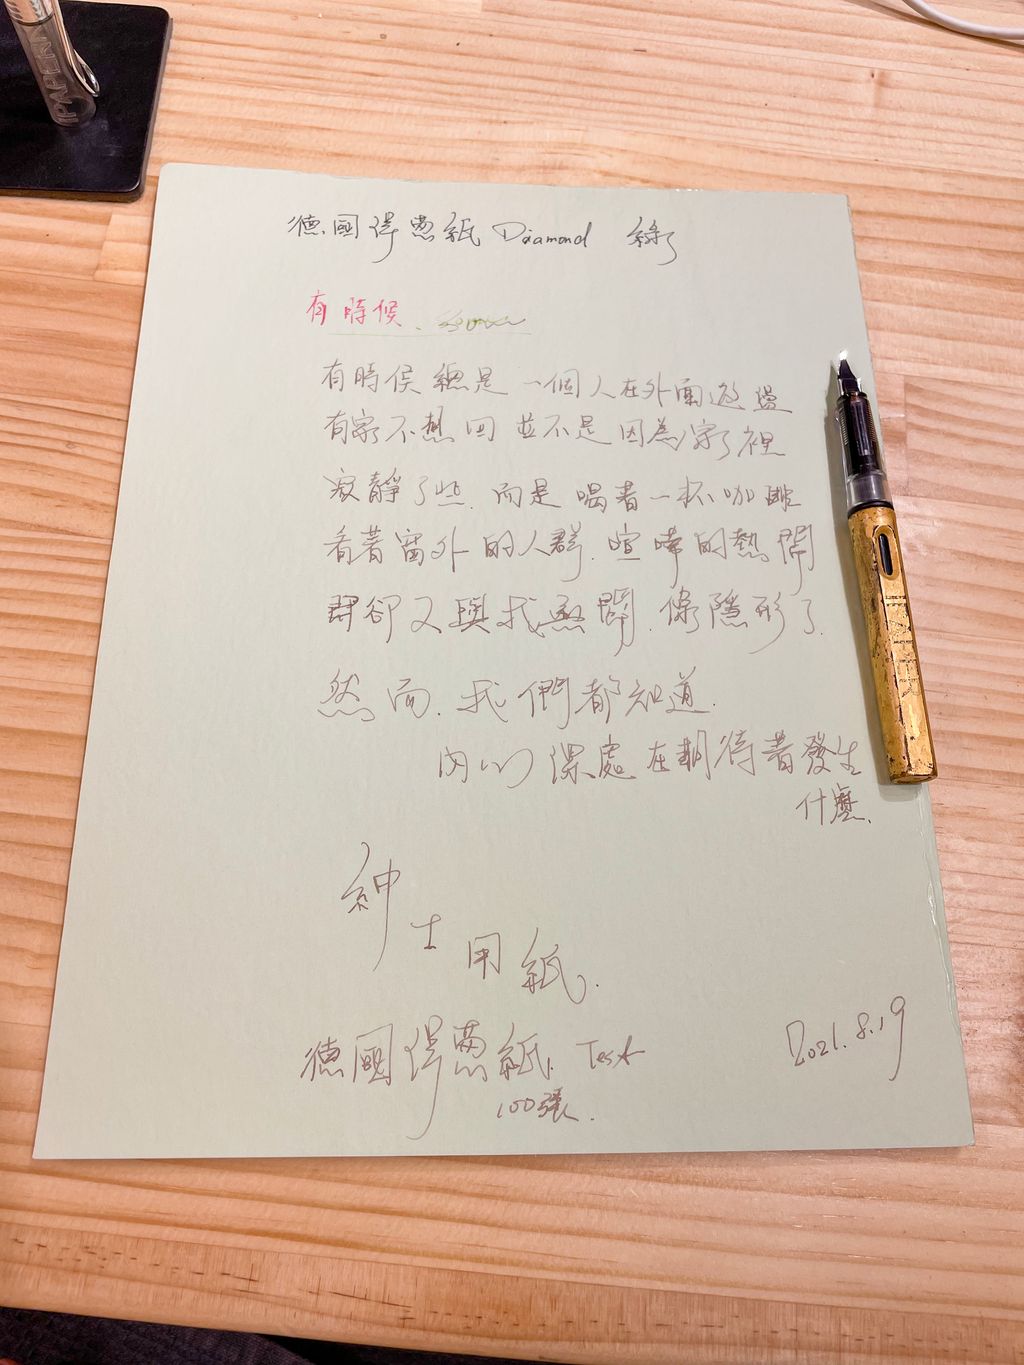 德國得憲紙 Diamond 綠
有時候、
有時候總是一個人在外面遊盪
有家不想回 並不是因為家裡
寂靜了些.而是喝著一杯咖啡
看著窗外的人群.喧嘩的熱鬧
卻又與我無關.像隱形了.
然而.我們都知道.
內心深處在期待著發生
什麼.
紳士用紙.
德國得憲紙. Test
100張.
2021.8.19
LAMY